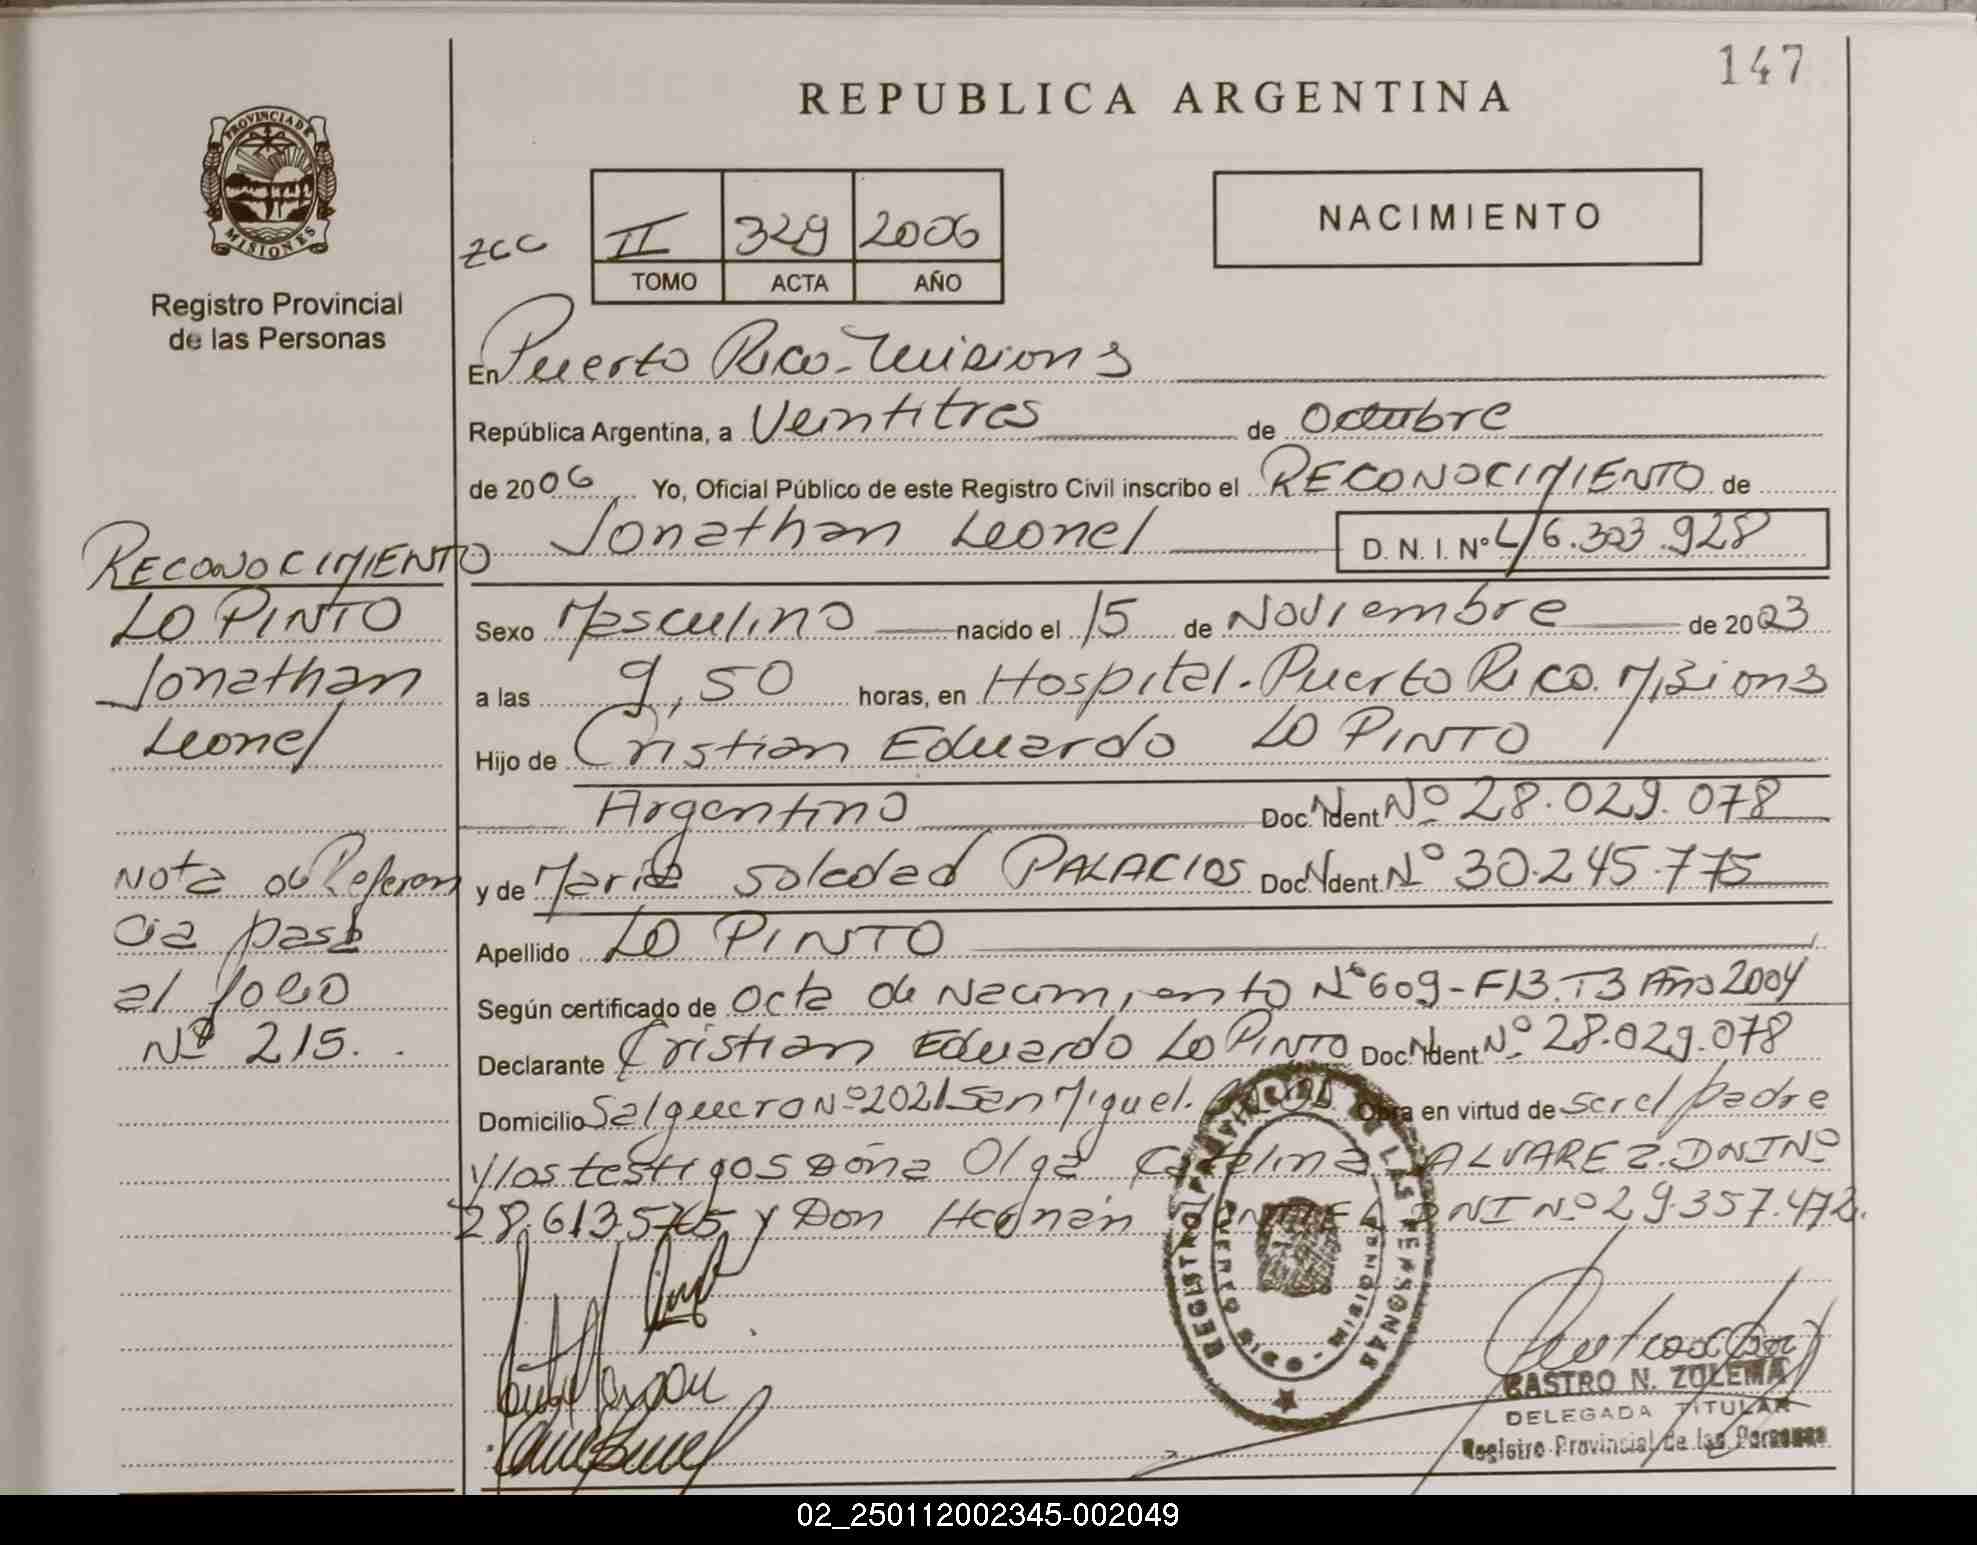 147
REPUBLICA ARGENTINA
PROVINCIA DE
MISIONES
Registro Provincial
de las Personas
II 329 2006
TOMO ACTA AÑO
NACIMIENTO
En Puerto Rico - Misiones
República Argentina, a Veintitres de Octubre
de 2006 Yo, Oficial Público de este Registro Civil inscribo el RECONOCIMIENTO de
Jonathan Leonel D. N. I. Nº 46.303.928
Sexo Masculino nacido el 15 de Noviembre de 2003
a las 9,50 horas, en Hospital. Puerto Rico. Misiones
Hijo de Cristian Eduardo LO PINTO
Argentino Doc. Ident. Nº 28.029.078
y de Maria Soledad PALACIOS Doc. Ident. Nº 30.245.775
Apellido LO PINTO
Según certificado de Acta de Nacimiento Nº 609-F13.T3 Año 2004
Declarante Cristian Eduardo LO PINTO Doc. Ident. Nº 28.029.078
Domicilio Salguero Nº 2021 San Miguel. Obra en virtud de ser el padre
y los testigos Doña Olga Catalina ALVAREZ. DNI Nº
28.613.575 y Don Hernán DNI Nº 29.357.472.
RECONOCIMIENTO
LO PINTO
Jonathan
Leonel
Nota de Referen
cia pasa
al folio
Nº 215.
REGISTRO PROVINCIAL DE LAS PERSONAS
PUERTO RICO - MISIONES
CASTRO N. ZULEMA
DELEGADA TITULAR
Registro Provincial de las Personas
02_250112002345-002049